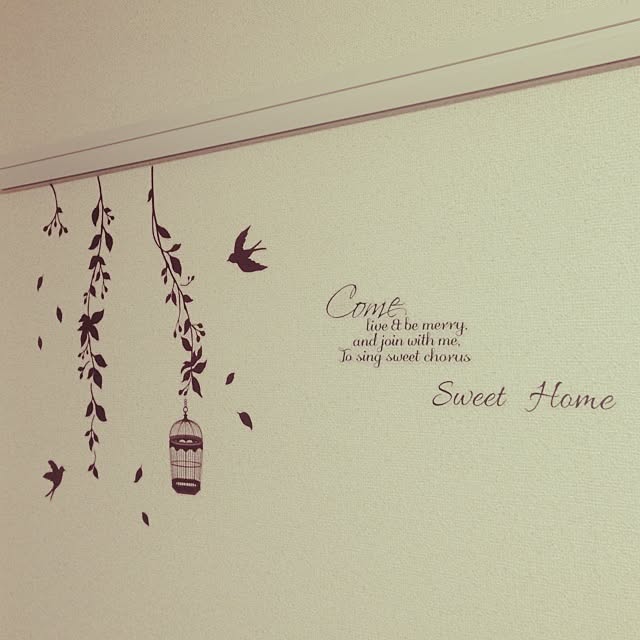 Come
live & be merry.
and join with me,
To sing sweet chorus
Sweet Home